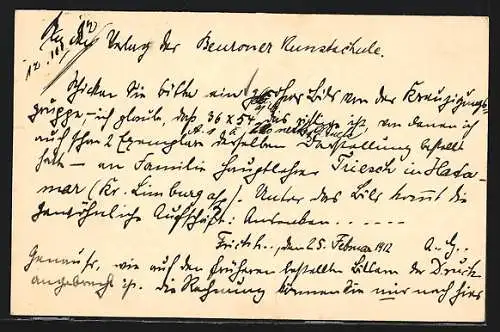 An den Verlag der Beuroner Kunstschule.
Schicken Sie bitte ein Bild von der Kreuzigungs-
gruppe – ich glaube, daß 36 x 54 das richtige ist, von denen ich
auch schon 2 Exemplare derselben Darstellung bestellt
habe – an Familie Hauptlehrer Triesch in Hada-
mar (Kr. Limburg a/L). Unter das Bild kommt die
gewöhnliche Aufschrift: Andenken . . . . . .
den 25. Februar 1912
Genau so, wie auf den früheren bestellten Bildern der Druck
angebracht ist. Die Rechnung können Sie mir nach hier